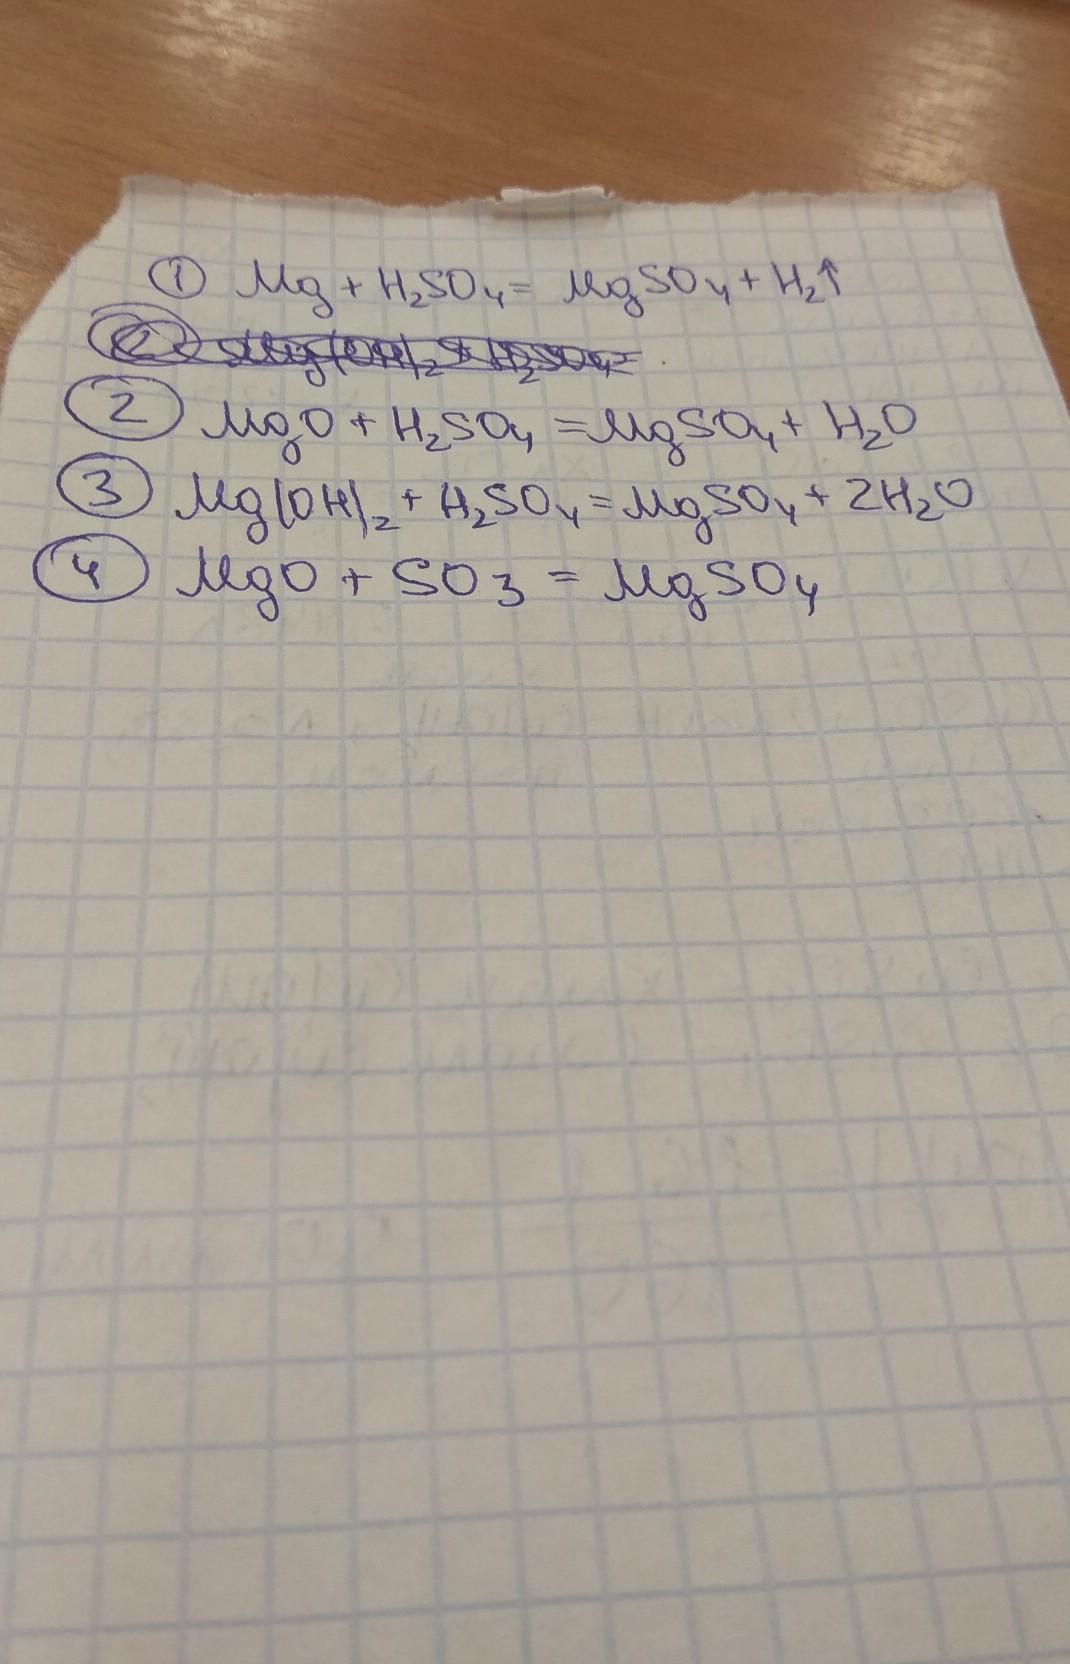 ① Mg + H₂SO₄ = MgSO₄ + H₂↑
② Mg(OH)₂ + H₂SO₄ =
② MgO + H₂SO₄ = MgSO₄ + H₂O
③ Mg(OH)₂ + H₂SO₄ = MgSO₄ + 2H₂O
④ MgO + SO₃ = MgSO₄